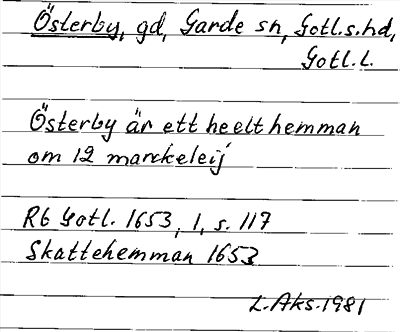 Österby, gd, Garde sn, Gotl.s.hd,
Gotl.l.
Österby är ett heelt hemman
om 12 marckeleij
Rb Gotl. 1653, 1, s. 117
Skattehemman 1653
L.Aks.1981